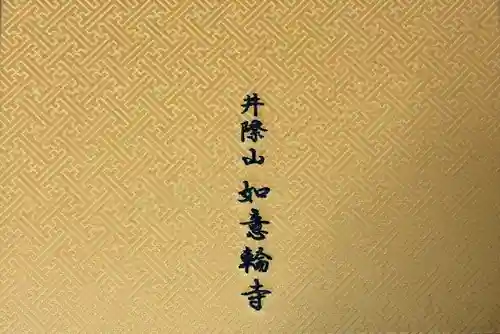 井際山 如意輪寺